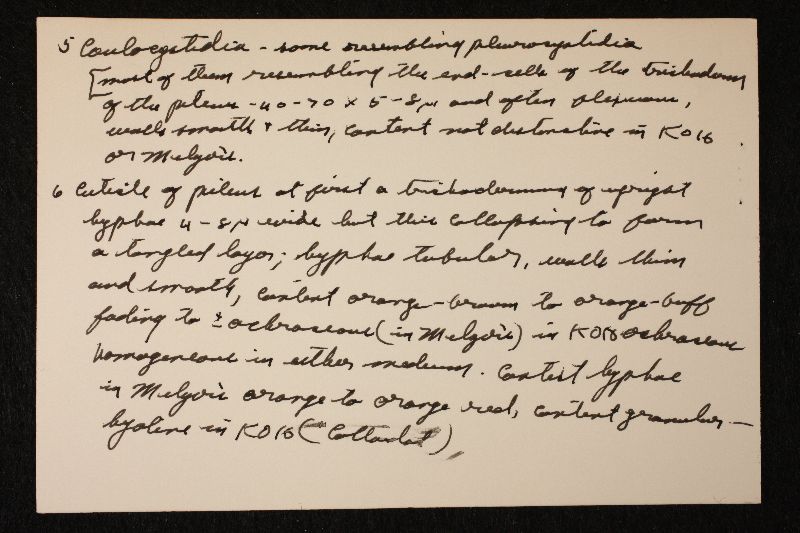 5 Caulocystidia - some resembling pleurocystidia
[most of them resembling the end-cells of the trichoderm
of the pileus - 40-70 x 5-8µ and often flexuous,
walls smooth & thin, content not distinctive in KOH
or Melzer's.
6 Cuticle of pileus at first a trichodermium of upright
hyphae 4-8µ wide but this collapsing to form
a tangled layer; hyphae tubular, walls thin
and smooth, content orange-brown to orange-buff
fading to ± ochraceous (in Melzer's) in KOH ochraceous
homogeneous in either medium. Context hyphae
in Melzer's orange to orange red, content granular -
hyaline in KOH ( )